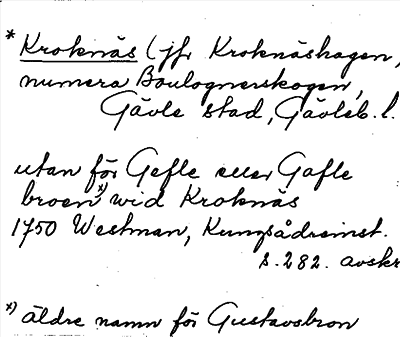 * Kroknäs (jfr Kroknäshagen,
numera Boulognerskogen,
Gävle stad, Gävleb. l.
utan för Gefle eller Gafle
broen *) wid Kroknäs
1750 Westman, Kungsådreinst.
s. 282. avskr
*) äldre namn för Gustavsbron